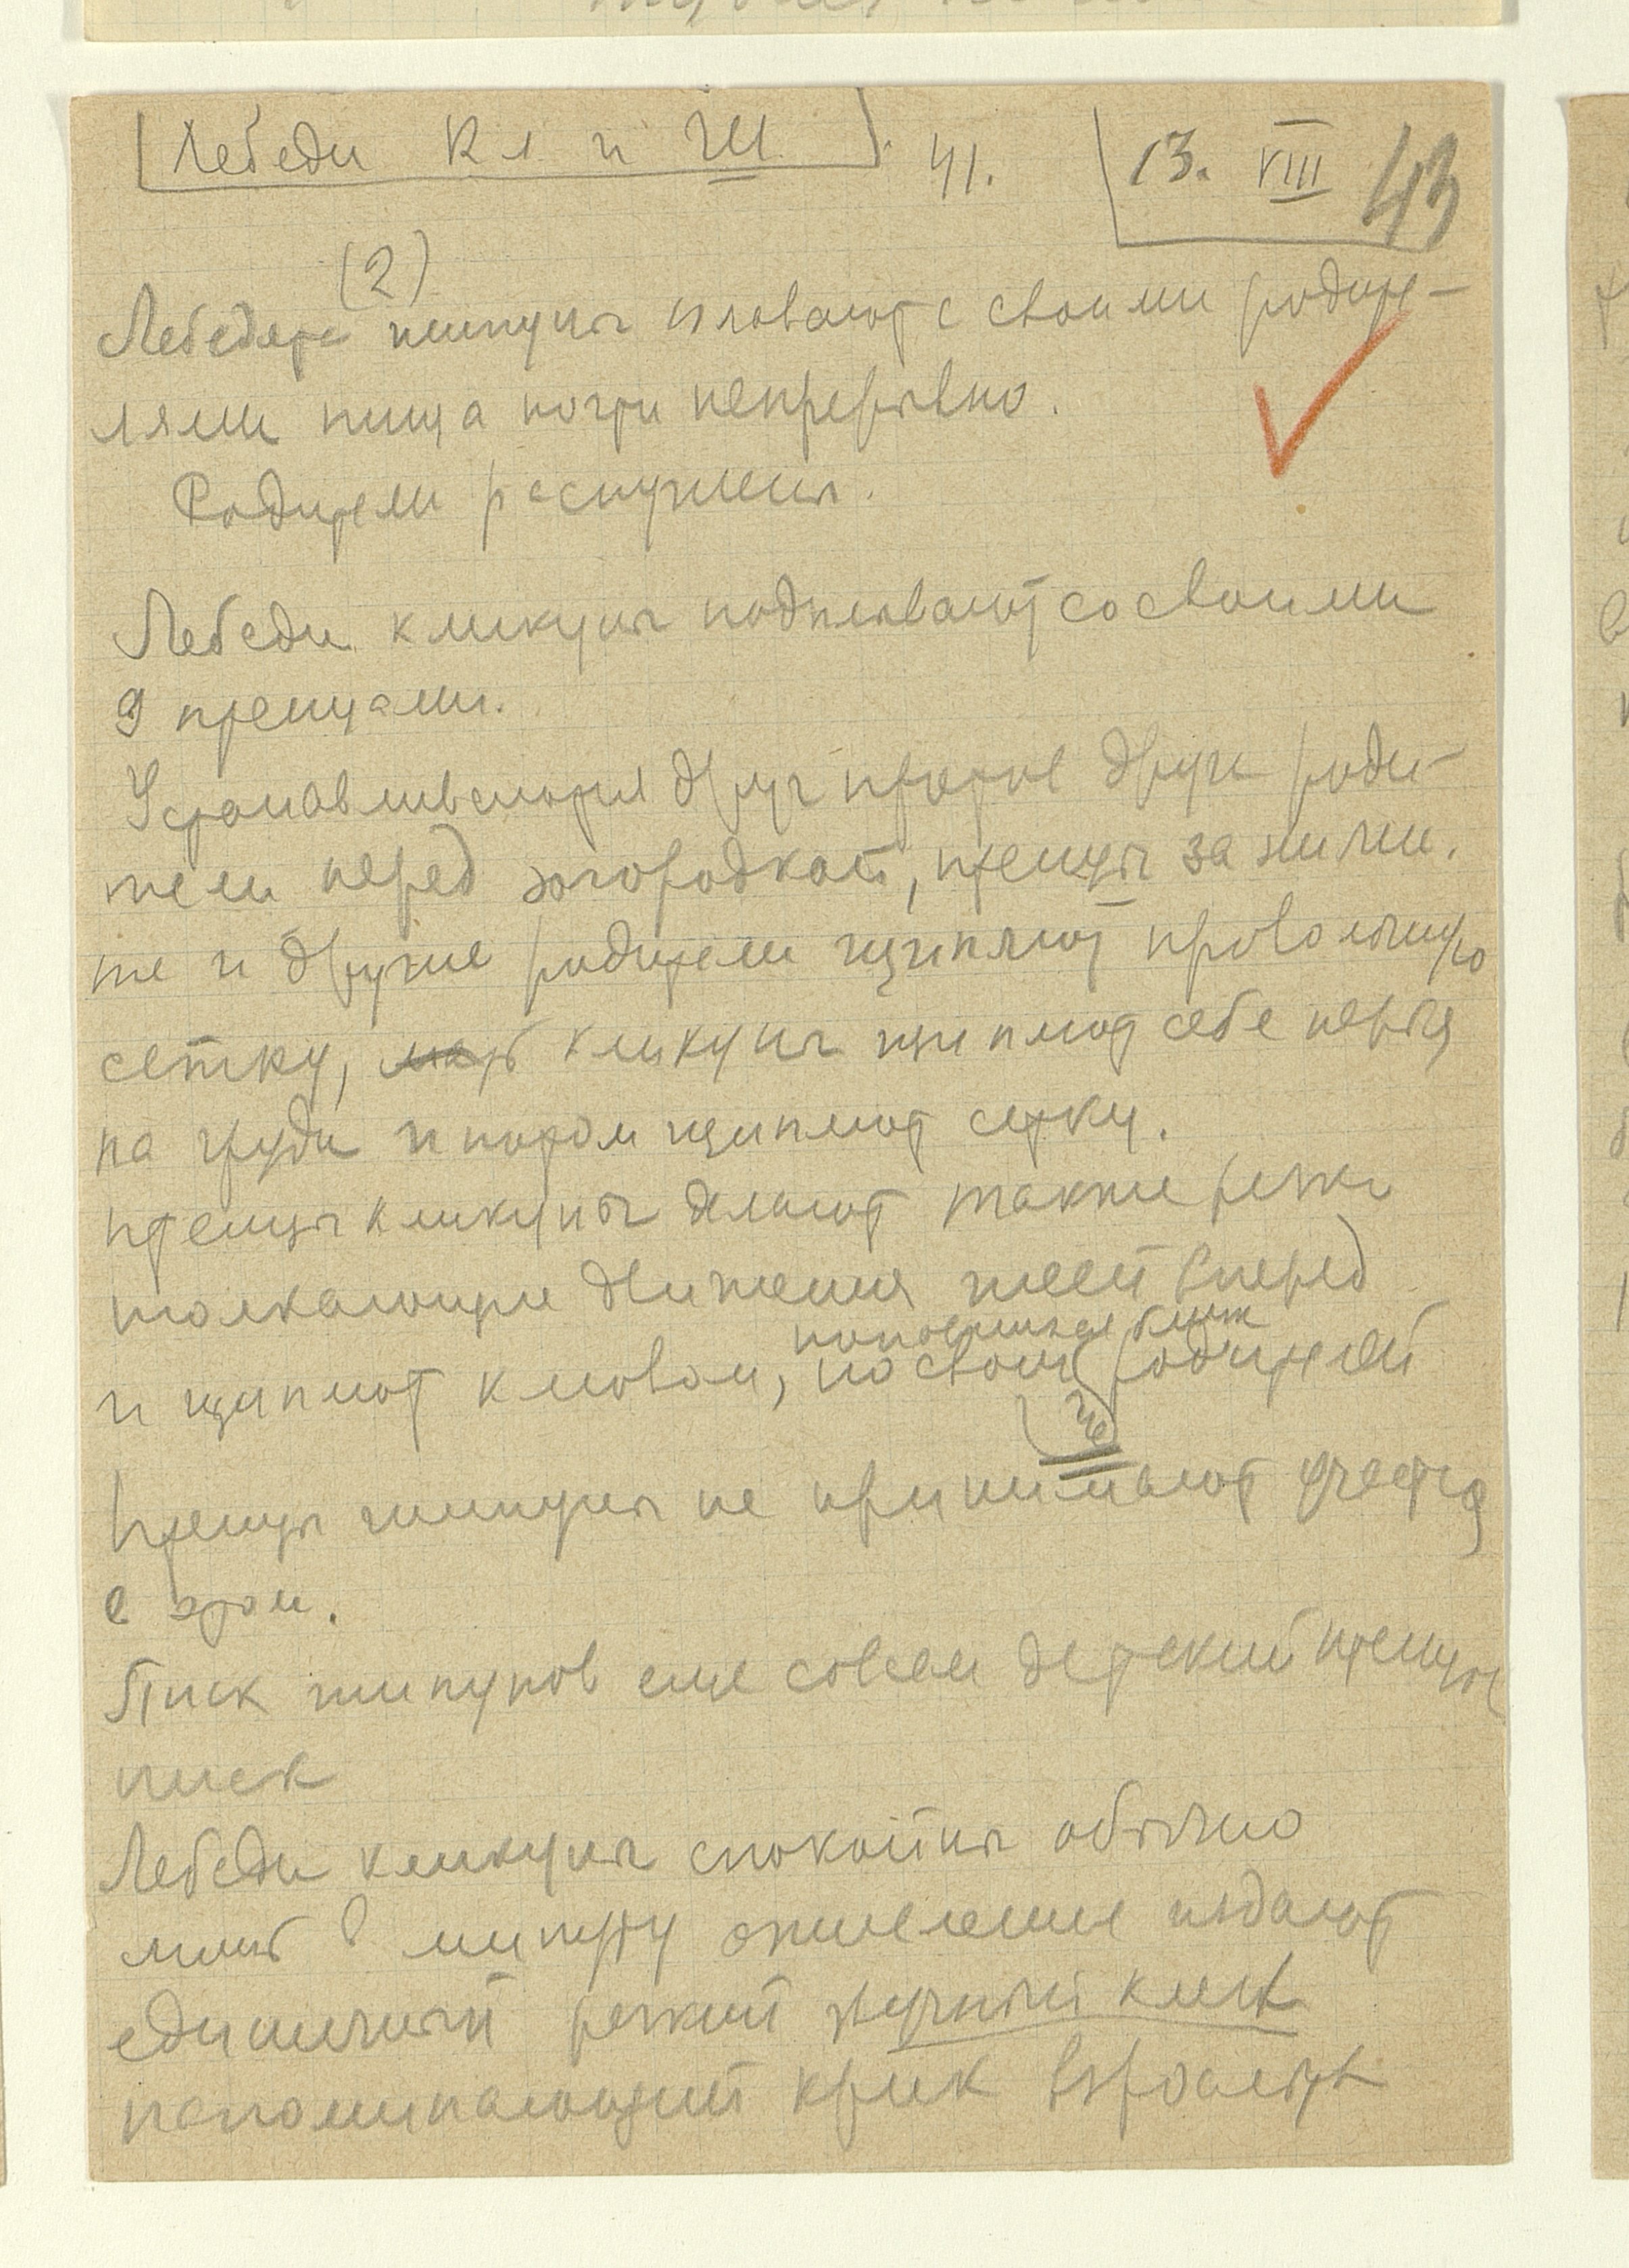 Лебеди Кл и Ш 41. 13. VIII 43
(2)
Лебедята шипуны плавают с своими родите-
лями пища почти непрерывно.
Родители распушены.
Лебеди кликуны подплывают со своими
9 птенцами.
Устанавливаются друг против друга роди-
тели перед загородкой, птенцы за ними.
те и другие родители щиплют проволочную
сетку, кликуны щиплют себе перья
на груди и потом щиплют сетку.
птенцы кликуны делают также резкие
толкающие движения шеей вперед
и щиплют клювом, но своих родителей
Птенцы шипуны не принимают участия
в этом.
Писк шипунов еще совсем детский птенцов
писк
Лебеди кликуны спокойны обычно
лишь в минуту оживления издают
единичный резкий звучный клик
напоминающий крик взрослых